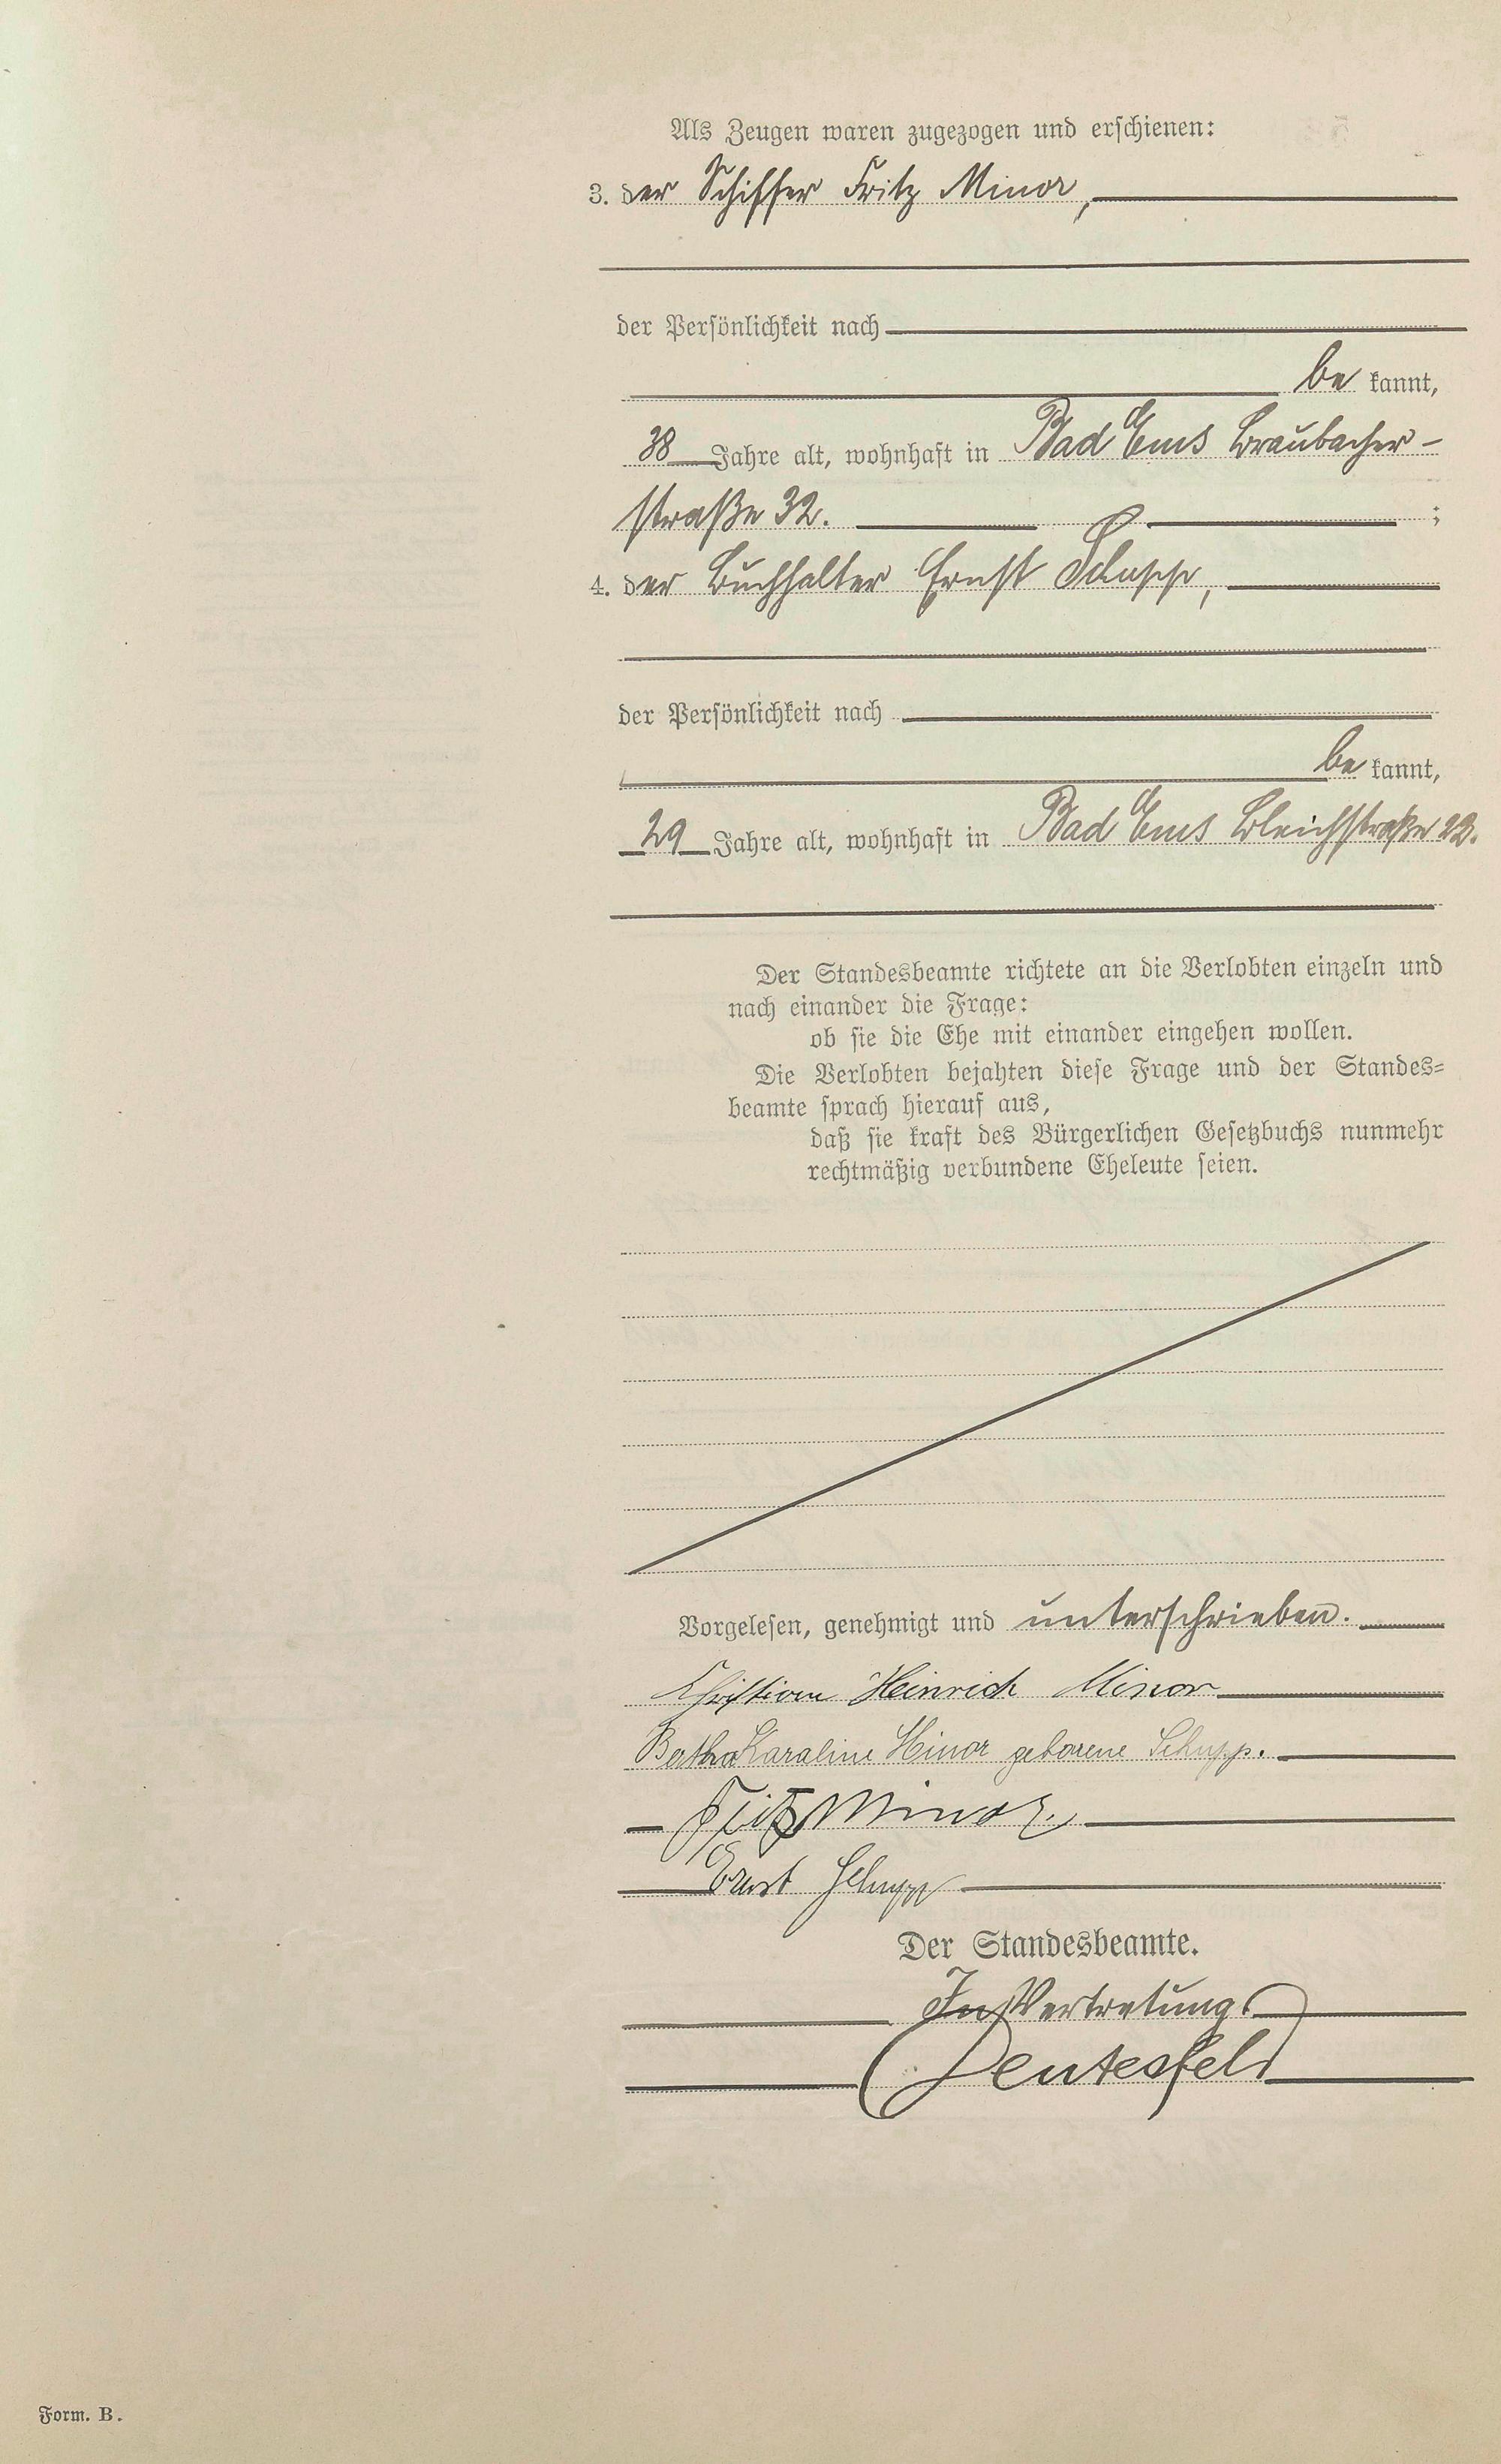 Als Zeugen waren zugezogen und erschienen:
3. der Schiffer Fritz Minor,
der Persönlichkeit nach
be kannt,
38 Jahre alt, wohnhaft in Bad Ems Braubacher-
straße 32. ;
4. der Buchhalter Ernst Schupp,
der Persönlichkeit nach
be kannt,
29 Jahre alt, wohnhaft in Bad Ems Bleichstraße 22.
Der Standesbeamte richtete an die Verlobten einzeln und
nach einander die Frage:
ob sie die Ehe mit einander eingehen wollen.
Die Verlobten bejahten diese Frage und der Standes-
beamte sprach hierauf aus,
daß sie kraft des Bürgerlichen Gesetzbuchs nunmehr
rechtmäßig verbundene Eheleute seien.
Vorgelesen, genehmigt und unterschrieben.
Christian Heinrich Minor
Bertha Karaline Minor geborene Schupp.
Fritz Minor.
Ernst Schupp
Der Standesbeamte.
In Vertretung
Dentesfeld
Form. B.